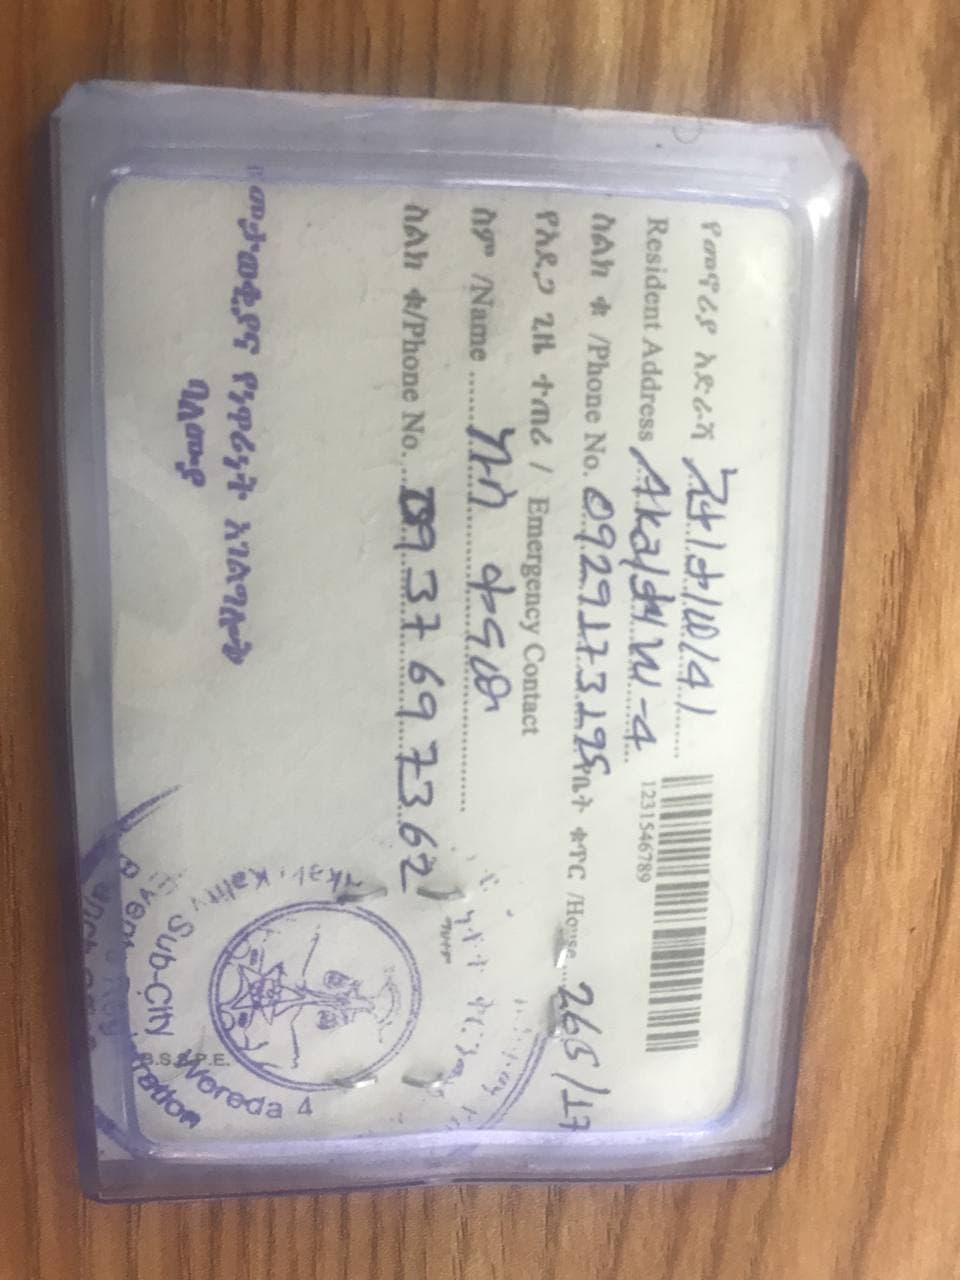 የመኖሪያ አድራሻ አቃ/ቃ/ወ/4/
Resident Address Aka/ W-4
1231546789
ስልክ ቁ /Phone No. 0929173195 የቤት ቁጥር /House 265/17
የአደጋ ጊዜ ተጠሪ / Emergency Contact
ስም /Name
ስልክ ቁ/Phone No. 0937697362
መታወቂያና የነዋሪነት አገልግሎት
ባለሙያ
Kality Sub-City Woreda 4
Events Registration
Branch Office
B.S.P.E.